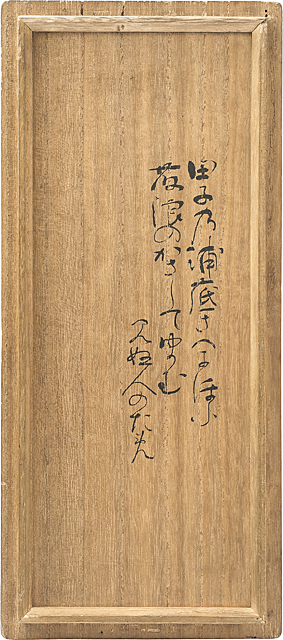 田子乃浦底さへにほふ
藤浪のかさしてゆかむ
見ぬ人のため